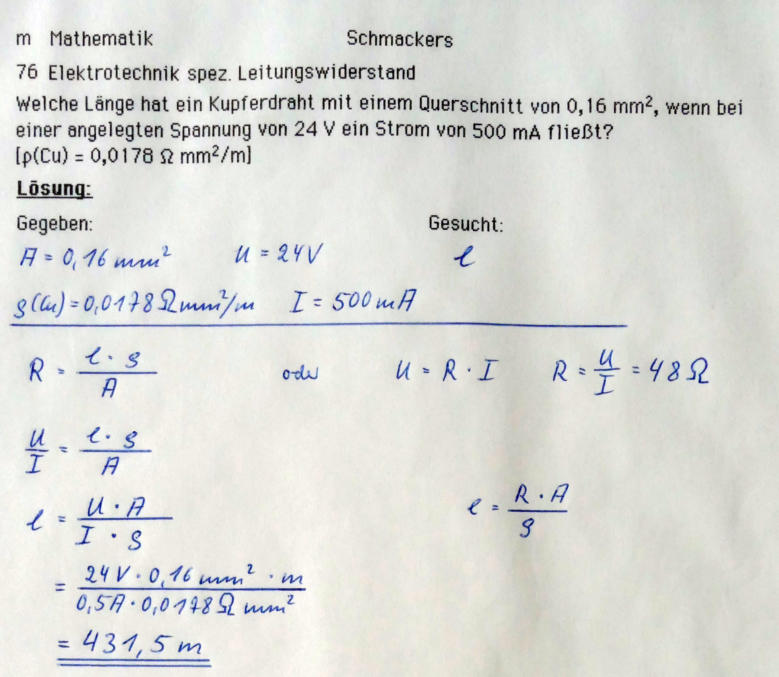 m Mathematik Schmackers
76 Elektrotechnik spez. Leitungswiderstand
Welche Länge hat ein Kupferdraht mit einem Querschnitt von 0,16 mm², wenn bei
einer angelegten Spannung von 24 V ein Strom von 500 mA fließt?
[ρ(Cu) = 0,0178 Ω mm²/m]
Lösung:
Gegeben: Gesucht:
A = 0,16 mm² U = 24V l
ρ(Cu) = 0,0178 Ω mm²/m I = 500 mA
R = l · ρ / A oder U = R · I R = U / I = 48 Ω
U / I = l · ρ / A
l = U · A / I · ρ l = R · A / ρ
= 24V · 0,16 mm² · m / 0,5A · 0,0178 Ω mm²
= 431,5 m